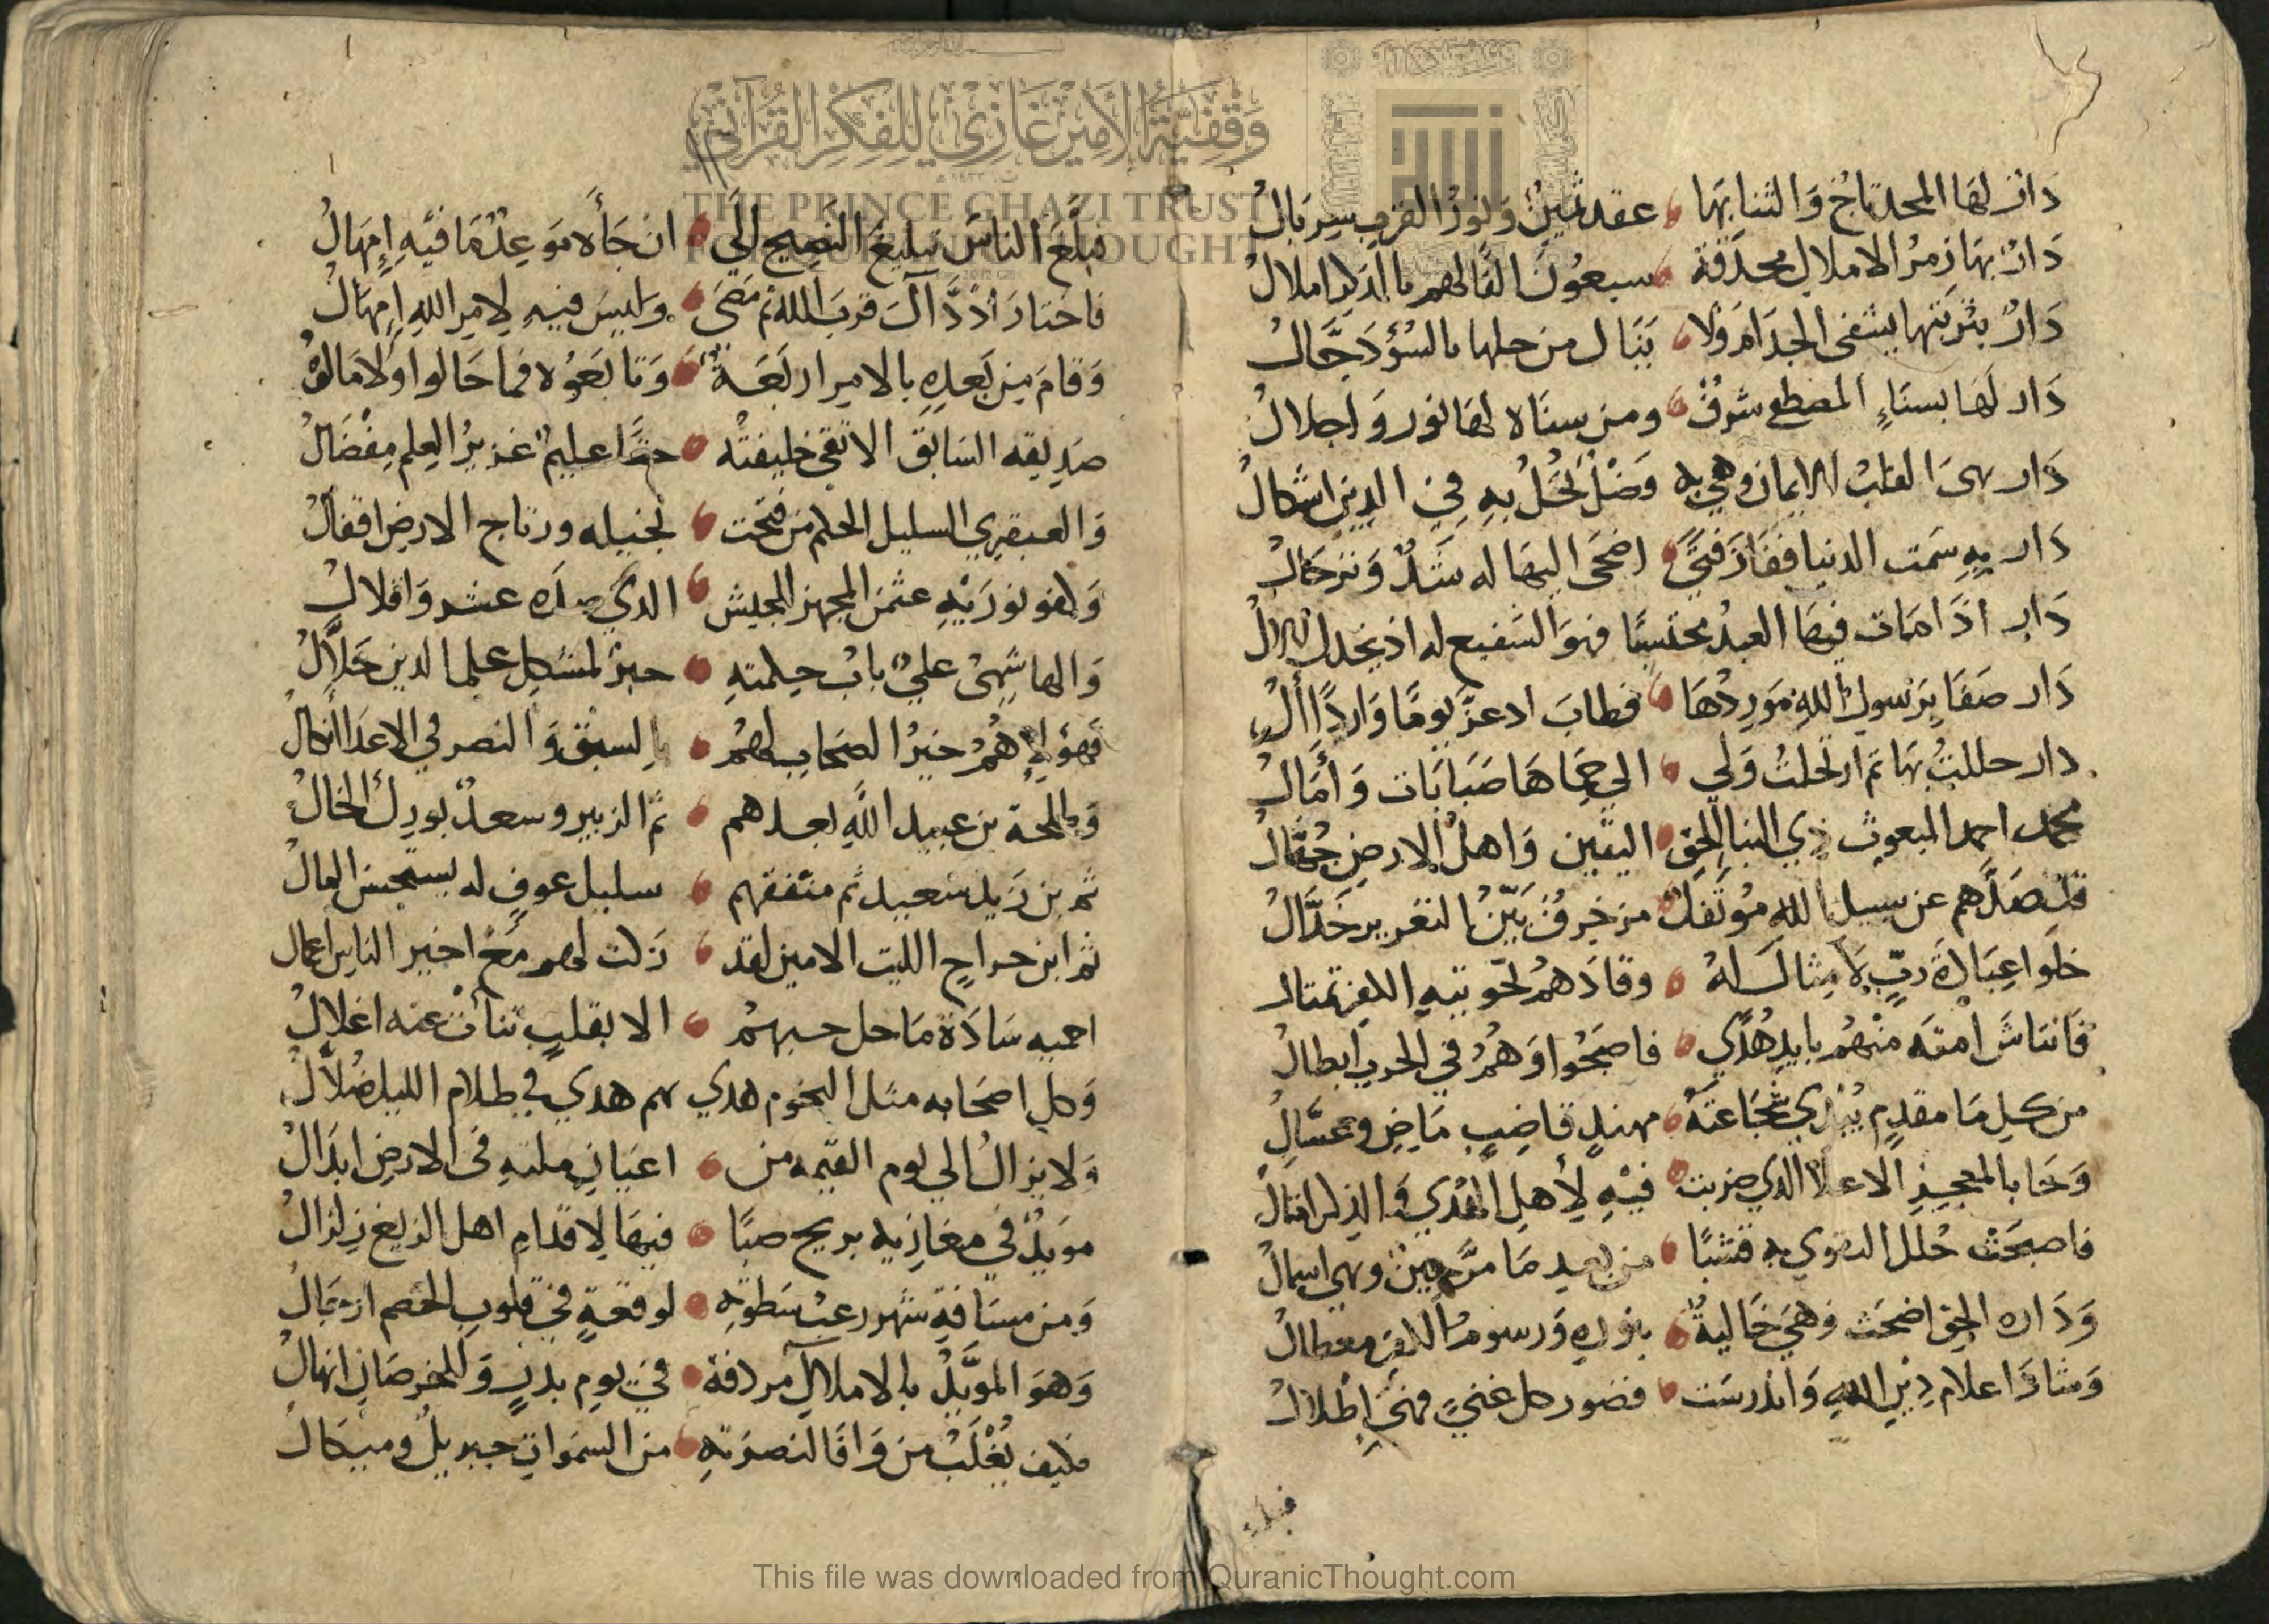 دار لها المجد تاج والثنا بها عقد ثمين ونور القرب سربال
دار بها زمر الاملاك محدقة سبعون الفا لهم بالذكر املال
دار بتربتها يشفى الجذام ولا ينال من حلها بالسؤ دجال
دار لها بسناء المصطفى شرف ومن سناه لها نور واجلال
دار بها القلب الايمان وهي به وضل تحل به في الدين اشكال
دار به سمت الدنيا ففاز فتى اضحى اليها له شد وترحال
دار اذا مات فيها العبد محتسبا فهو الشفيع له اذ يخذل الال
دار صفا برسول الله موردها فطاب اد عز يوما واردا ال
دار حللت بها ثم ارتحلت ولي الي حماها صبابات وأمال
محمد احمد المبعوث ذي النبا الحق اليقين واهل الارض جهال
قد صدهم عن سبيل الله مؤتفك مزخرف بين التغرير خدال
خلوا عبادة رب لا مثال له وقادهم نحو تيه الكفر تمثال
فانتاش امته منهم بايد هدي فاصبحوا وهم في الحرب ابطال
من كل ما مقدم يبدي شجاعته مهند قاضب ماض وعسال
وجا بالمعجز الاعلا الذي ضربت فيه لأهل الهدي والذكر امثال
فاصبحت حلل التقوي به قشبا من بعد ما مر حين وهي اسمال
ودارة الحق اضحت وهي خالية بنوره ورسوم الكفر معطال
وشاد اعلام دين الله واندرست قصور كل غني فهي اطلال
فبلغ
THE PRINCE GHAZI TRUST
FOR QUR'ANIC THOUGHT
وقفية الأمير غازي للفكر القرآني
فبلغ الناس تبليغ النصيح الي ان جأه موعد ما فيه إمهال
فاختار اذ ذاك قرب الله ثم مضى وليس فيه لامر الله إمهال
وقام من بعده بالامر اربعة وتابعوه فما حالوا ولا مالو
صديقه السابق الاتقى خليفته حقا عليم غزير العلم مفضال
والعبقري السليل الحلم من فتحت بخيله ورتاج الارض اقفال
وكفو نوريه عثمن المجهز الجيش الذي صده عسر واقلال
والهاشمي علي باب حكمته حبر لمشكل علم الدين حلال
فهؤلاء هم خير الصحاب لهم بالسبق والنصر في الاعدا انكال
وطلحة بن عبيد الله بعدهم ثم الزبير وسعد بورك الخال
ثم بن زيد سعيد ثم منفقهم سليل عوف له يستحسن المال
ثم ابن جراح الليث الامين لقد زكت لهم مع اخير الناس اعمال
احمبه سادة ما حل حبهم الا بقلب تناأت عنه اغلال
وكل اصحابه مثل النجوم هدي بهم هدي في ظلام الليل ضلال
ولا يزال الي يوم القيمه من اعيان ملته في الارض ابدال
مويد في مغازيه بريح صبا فيها لاقدام اهل الزيغ زلزال
ومن مسافة شهر رعب سطوته لوقعة في قلوب الخصم ازجال
وهو المويد بالاملاك مردفة في يوم بدر وللخرصان انهال
فكيف يغلب من وافا لنصرته من السموات جبريل وميكال
This file was downloaded from QuranicThought.com